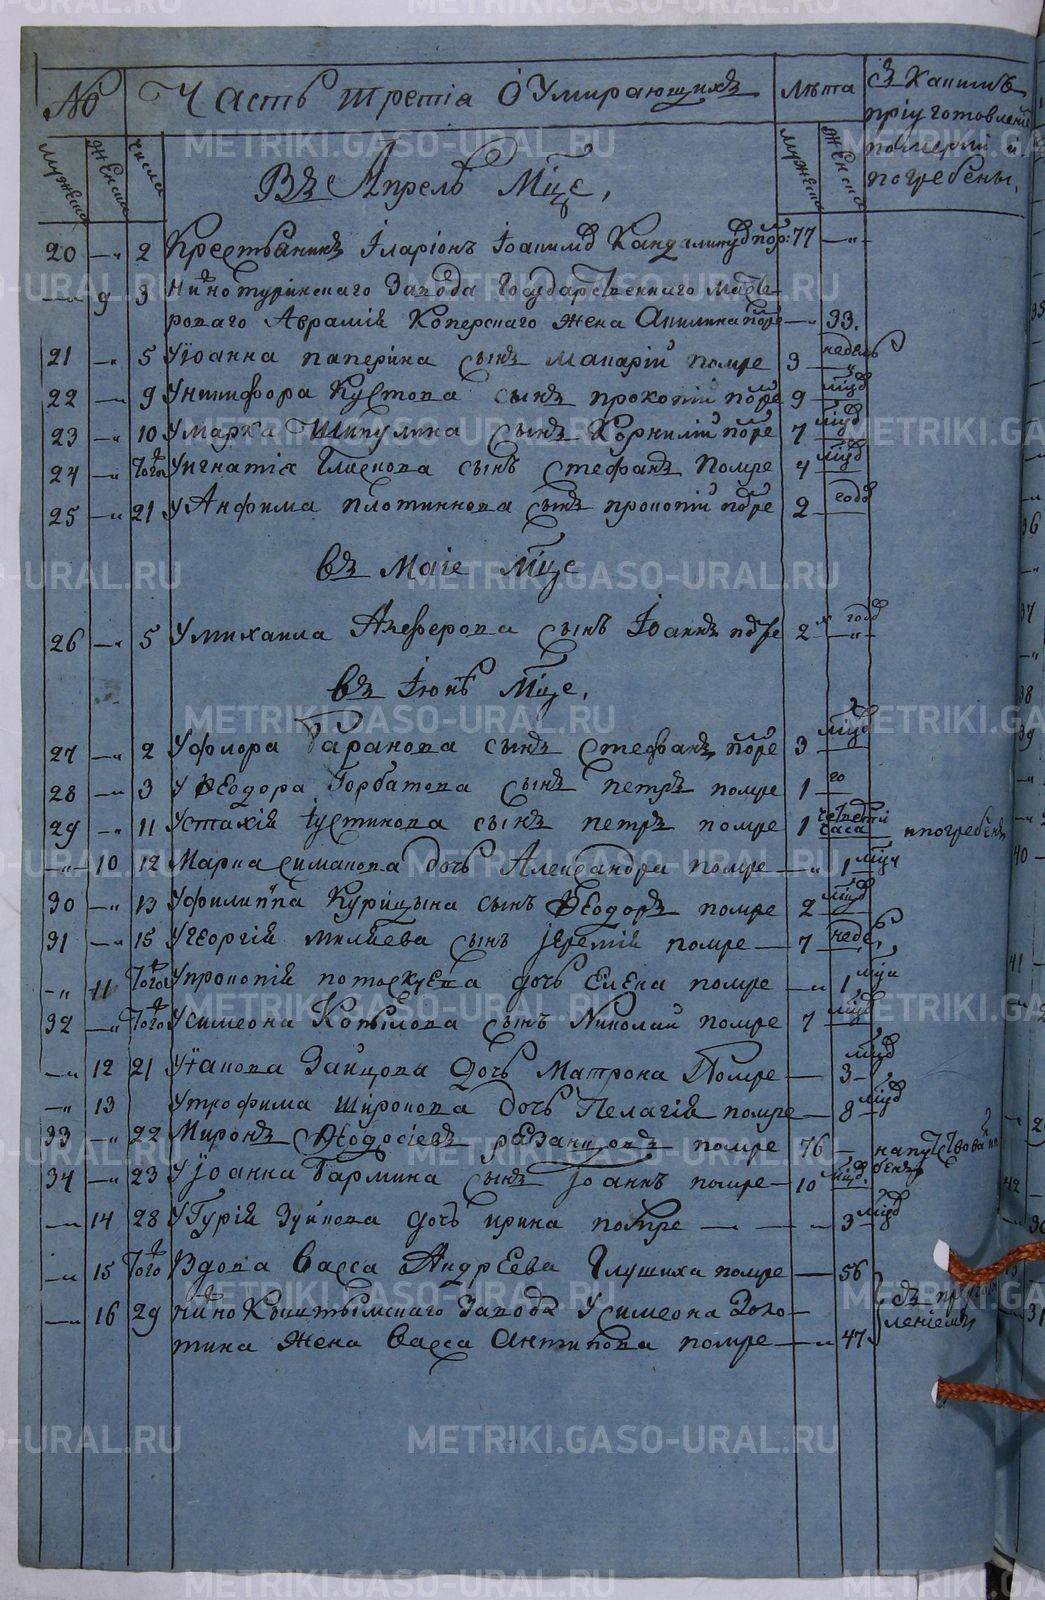 № Часть третіа О Умирающихъ Лѣта съ Каким
пріуготовлені
мужеска женска числа мужеска женска померли и
погребены.
Въ Апрелѣ Мцѣ,
20 —„ 2 Крестьянинъ Іларіонъ Іоакимов 77 —„
—„ 9 3 Нижнотурінскаго Завода Государственнаго
Аврамія жена Акилина — 33.
21 —„ 5 У Іоанна паперина сынъ макарій помре 3 недель
22 —„ 9 У никифора Кустова сынъ прокопій помре 9 мцов
23 —„ 10 У марка Шипулина сынъ Корнилій помре 7 мцов
24 —„ Того У игнатія сынъ стефанъ Помре 4 мцов
25 —„ 21 У Анфима плотникова сынъ прокопій помре 2 годов
въ Маіе Мцѣ
26 —„ 5 У михаила сынъ Іоаннъ помре 2 х годов
въ Іюнѣ Мцѣ.
27 —„ 2 У флора Баранова сынъ Стефанъ помре 3 мцов
28 —„ 3 У Ѳеодора Горбатова сынъ петръ помре 1 го
29 —„ 11 У Стахія Іустинова сынъ петръ помре 1 четверти часа и погребенъ
—„ 10 12 Марка симанова дочь Александра помре —„ 1 мцу
30 —„ 13 У филиппа Курицына сынъ Ѳеодоръ помре 2 мцов
31 —„ 15 У георгія миляева сынъ іеремій помре — 7 недел
—„ 11 Того У прокопія потоскуева дочь Елена помре —„ 1 мцу
32 —„ Того У симеона Копылова сынъ Николай помре 7 мцов
—„ 12 21 У Іакова Зайцова дочь Матрона Помре — 3 мцов
—„ 13 У трофима Широкова дочь Пелагія помре — 8 мцов
33 —„ 22 Миронъ Ѳеодосіевъ рязанцовъ помре 76 —
34 —„ 23 У Іоанна Бармина сынъ іоаннъ помре — 10 мцов.
—„ 14 28 У Гурія Зуйкова дочь ирина помре — — „ 3 мцов
—„ 15 Того Вдова васса Андреева Глушиха помре — 56
—„ 16 29 Нижно Кыштымскаго Завода У симеона Золо-
тина жена васса Антипова помре —„ 47